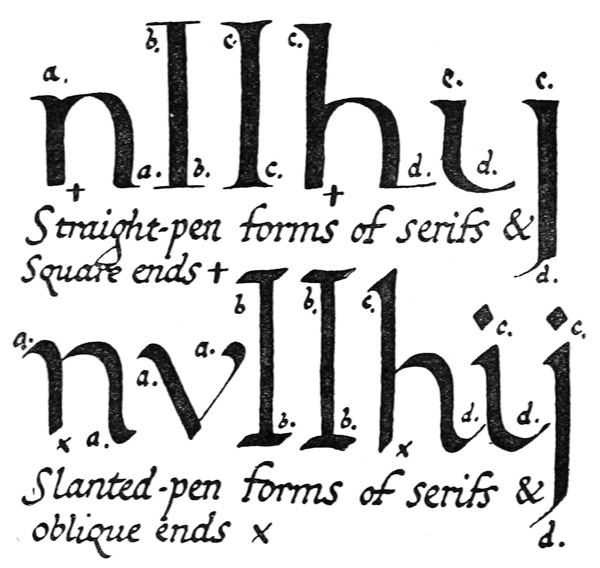 a. b. c. c. e. c.
nIIhij
a. b. c. d. d.
Straight-pen forms of serifs &
Square ends + d.
a. a. a. b b. c. c. c.
nvIIhij
x a. b. b. x d. d.
Slanted-pen forms of serifs &
oblique ends x d.